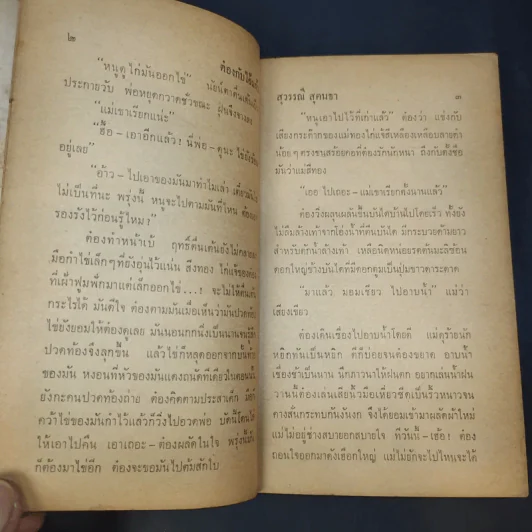 ๒
ต้องกับไข้
"หนูดูไก่มันออกไข่" นัยน์ตาคืนเต้น
ประกายวับ พ่อหยุดกวาดชั่วขณะ
"แม่เขาเรียกแน่ะ"
"ฮื้อ - เอาอีกแล้ว! นี่พ่อ - ดูนะ ไข่ยังร้อน
อยู่เลย"
"อ้าว - ไปเอาของมันมาทำไมเล่า เดี๋ยวมันไป
ไม่เป็นที่นะ พรุ่งนี้ หนูจะไปตามมันที่ไหน ต้อง
รองรังไว้ก่อนรู้ไหม?"
ต้องทำหน้าเบ้ ฤทธิ์ตื่นเต้นยังไม่คลาย
มือกำไข่เล็กๆ ที่ยังอุ่นไว้แน่น สีทอง ไก่แจ้ของต้อง
ที่เฝ้าฟูมฟักมาแต่เล็กออกไข่...! จะไม่ให้ตื่นเต้น
กระไรได้ มันดีใจ ต้องตามมันเมื่อเห็นว่ามันปวดท้อง
ไข่ยังยอมให้ต้องดูเลย มันนอนกกนิ่งเป็นนานจนรู้สึก
ปวดท้องจึงลุกขึ้น แล้วไข่ก็หลุดออกจากบั้นท้าย
ของมัน หงอนที่หัวของมันแดงถนัดทีเดียวในตอนนั้น
ยังกะคนปวดท้องถ่าย ต้องคิดตามประสาเด็ก
คว้าไข่ของมันกำไว้แล้วก็วิ่งไปอวดพ่อ บัดนี้โดนไล่
ให้เอาไปคืน เอาเถอะ - ต้องผลัดในใจ พรุ่งนี้มัน
ก็ต้องมาไข่อีก ต้องจะขอมันไปต้มสักใบ
สุวรรณี สุคนธา
๓
"หนูเอาไปไว้ที่เก่าแล้ว" ต้องว่า แข่งกับ
เสียงกระต๊ากของแม่ทองไก่แจ้สีเหลืองเหลือบลายดำ
น้อยๆ ตรงขนสร้อยคอที่ต้องรักนักหนา ถึงกับตั้งชื่อ
มันว่าแม่สีทอง
"เออ ไปเถอะ - แม่เขาเรียกตั้งนานแล้ว"
ต้องวิ่งผลุนผลันขึ้นบันไดบ้านไปโดยเร็ว ทั้งยัง
ไม่ลืมล้างเท้าจากโอ่งน้ำที่ตีนบันได มีกระบวยด้ามยาว
สำหรับตักน้ำล้างเท้า เหลือนิดหน่อยรดต้นมะลิซ้อน
ดอกใหญ่ข้างบันไดที่มีดอกตูมเป็นปุ่มขาวดาระดาด
"มาแล้ว มอมเชียว ไปอาบน้ำ" แม่ว่า
เสียงเขียว
ต้องเดินเชื่องไปอาบน้ำโดยดี แม่ดุร้ายนัก
หยิกทันเป็นหยิก ตีก็บ่อยจนต้องขยาด อาบน้ำ
เชื่องช้าเป็นนาน นึกภาวนาให้ฝนตก อยากเล่นน้ำฝน
วานนี้ต้องเล่นเสียนิ้วมือเหี่ยวซีดเป็นริ้วหนาวจน
คางสั่นกระทบกันงั่นงก จึงได้ยอมเข้ามาผลัดผ้าใหม่
แม่ไม่อยู่ช่างสบายอกสบายใจ ทีวันนี้ - เฮ้อ! ต้อง
ถอนใจออกมาดังเฮือกใหญ่ แม่ไม่ยักจะไปไหนจะได้